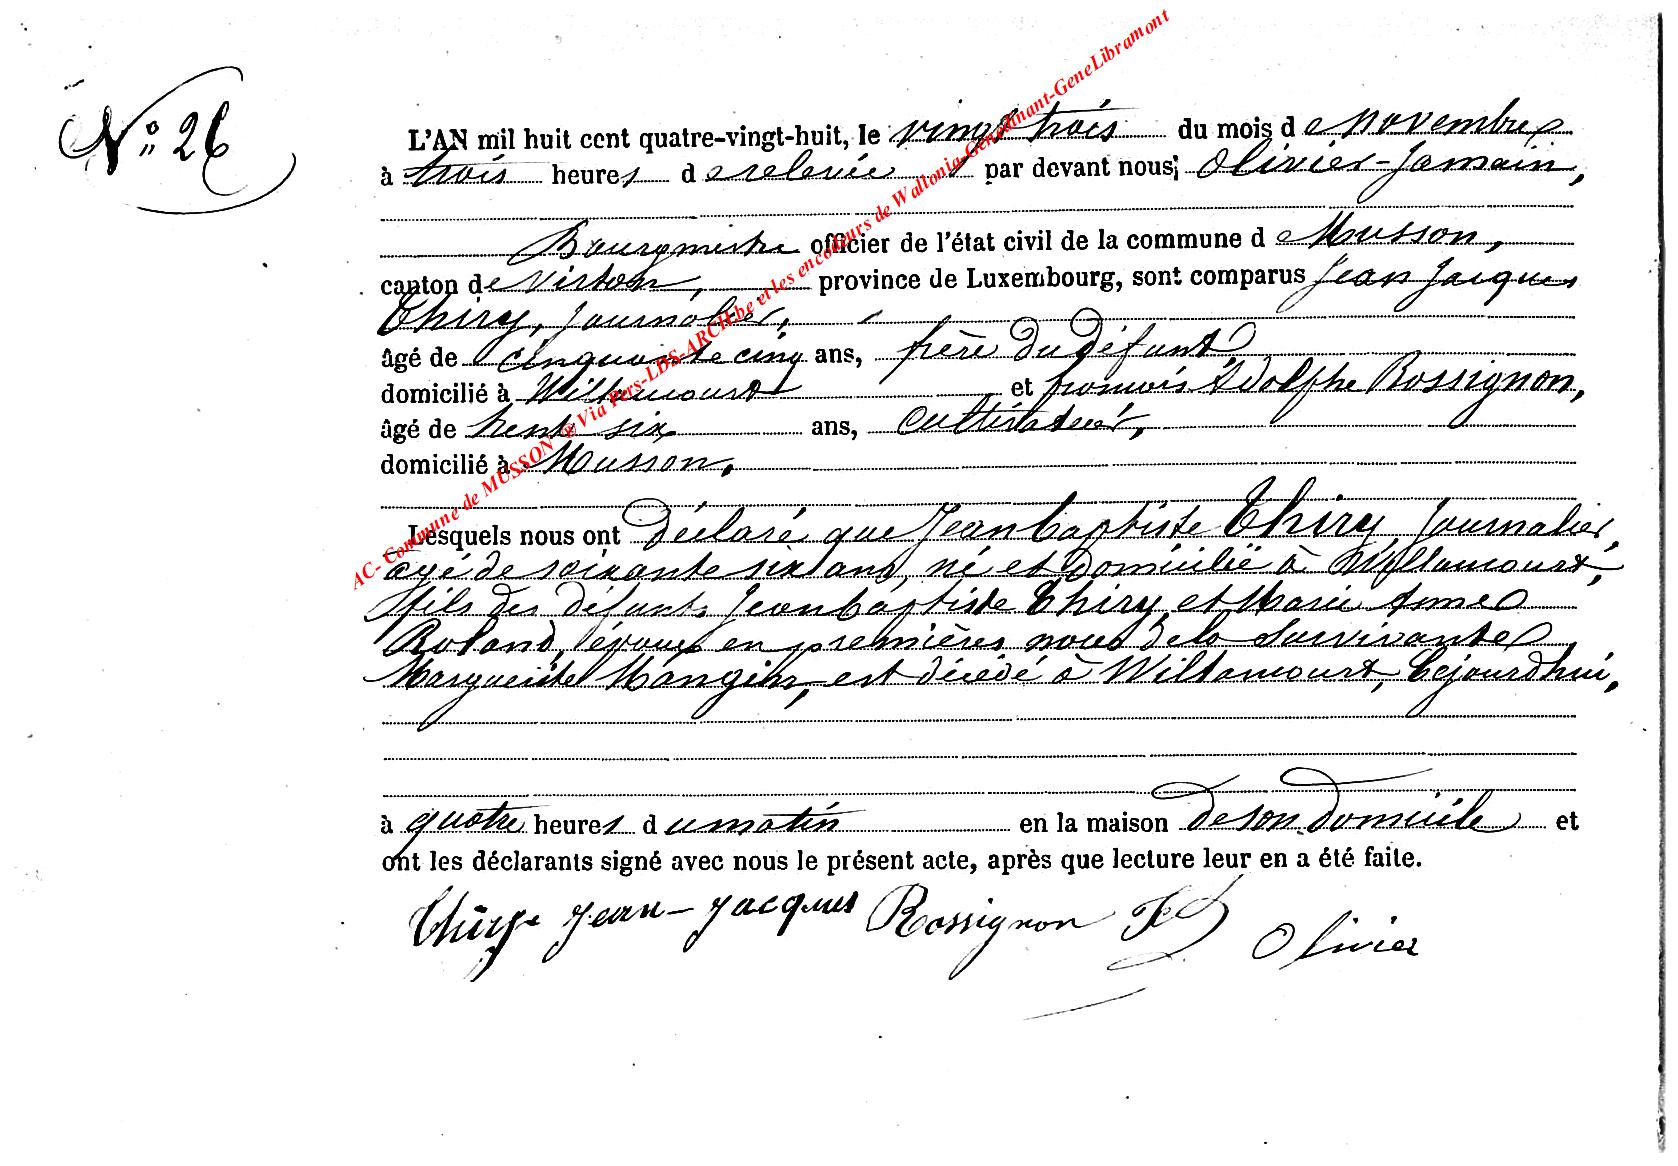 N° 26
L'AN mil huit cent quatre-vingt-huit, le vingt trois du mois de novembre
à trois heures de relevée par devant nous; Olivier-Jamain,
Bourgmestre officier de l'état civil de la commune de Musson,
canton de Virton, province de Luxembourg, sont comparus Jean Jacques
Thiry, Journalier,
âgé de cinquante cinq ans, frère du défunt
domicilié à Willancourt et françois Adolphe Rossignon,
âgé de trente six ans, cultivateur,
domicilié à Musson,
Lesquels nous ont déclaré que Jean baptiste Thiry Journalier,
agé de soixante six ans, né et domicilié à Willancourt,
fils des défunts Jean baptiste Thiry et Marie Anne
Roland, époux en premières noces de la survivante
Marguerite Mangin, est décédé à Willancourt, Cejourd'hui,
à quatre heures du matin en la maison de son domicile et
ont les déclarants signé avec nous le présent acte, après que lecture leur en a été faite.
Thiry Jean-Jacques Rossignon Olivier
AC- Commune de MUSSON ® Via Pers-LDS-ARCH.be et les encodeurs de Waltonia-Genedinant-GeneLibramont